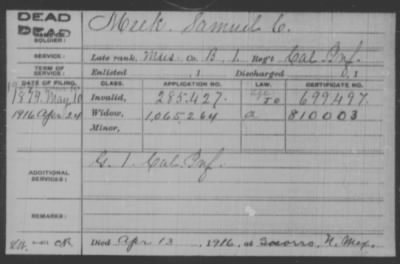 DEAD
DEAD
SOLDIER: Meek, Samuel C.
SERVICE: Late rank, Mus. Co. B, 1 Reg't Cal. Inf.
TERM OF SERVICE: Enlisted , 1 Discharged , 1
DATE OF FILING. CLASS. APPLICATION NO. LAW. CERTIFICATE NO.
1879 May Invalid, 285.427. 699.497.
1916 Apr. 24 Widow, 1,065.264 a 810003
Minor,
ADDITIONAL SERVICES: G. 1. Cal. Inf.
REMARKS:
Died Apr 13, 1916, at Socorro, N. Mex.